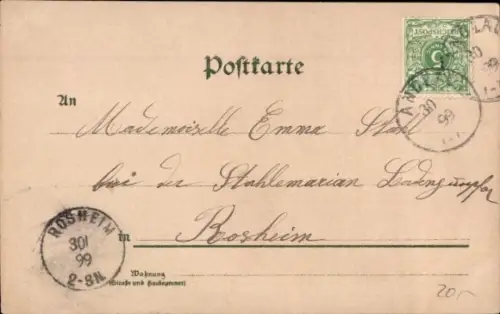 Postkarte
REICHSPOST
5
ANDLAU
30
99
1-
ANDLAU
30
99
An
Mademoiselle Emma Stahl
bei der
in Rosheim
ROSHEIM
30/
99
2-3N.
Wohnung
(Straße und Hausnummer)
20,-